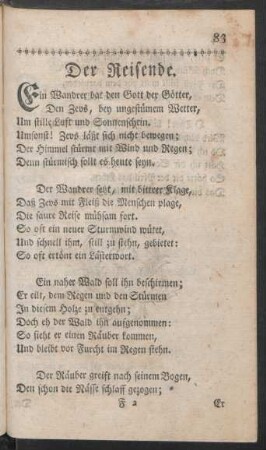 83
Der Reisende.
Ein Wandrer bat den Gott der Götter,
Den Zevs, bey ungestümem Wetter,
Um stille Luft und Sonnenschein.
Umsonst! Zevs läßt sich nicht bewegen;
Der Himmel stürmt mit Wind und Regen;
Denn stürmisch sollt es heute seyn.
Der Wandrer setzt, mit bittrer Klage,
Daß Zevs mit Fleiß die Menschen plage,
Die saure Reise mühsam fort.
So oft ein neuer Sturmwind wütet,
Und schnell ihm, still zu stehn, gebietet:
So oft ertönt ein Lästerwort.
Ein naher Wald soll ihn beschirmen;
Er eilt, dem Regen und den Stürmen
In diesem Holze zu entgehn;
Doch eh der Wald ihn aufgenommen:
So sieht er einen Räuber kommen,
Und bleibt vor Furcht im Regen stehn.
Der Räuber greift nach seinem Bogen,
Den schon die Nässe schlaff gezogen;
F 2 Er